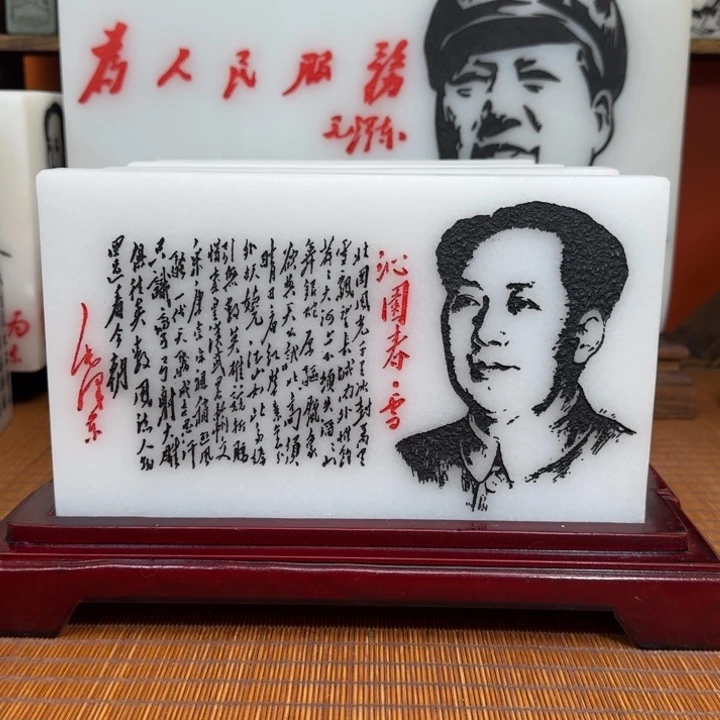 為人民服務
毛泽东
沁園春·雪
北国风光千里冰封万里
雪飘望长城内外惟馀
莽莽大河上下顿失滔滔山
舞银蛇原驱腊象
欲与天公试比高须
晴日看红装素裹分
外妖娆江山如此多娇
引无数英雄竞折腰
惜秦皇汉武略输文
采唐宗宋祖稍逊风
骚一代天骄成吉思汗
只識弯弓射大雕
俱往矣数风流人物
還看今朝
毛泽东